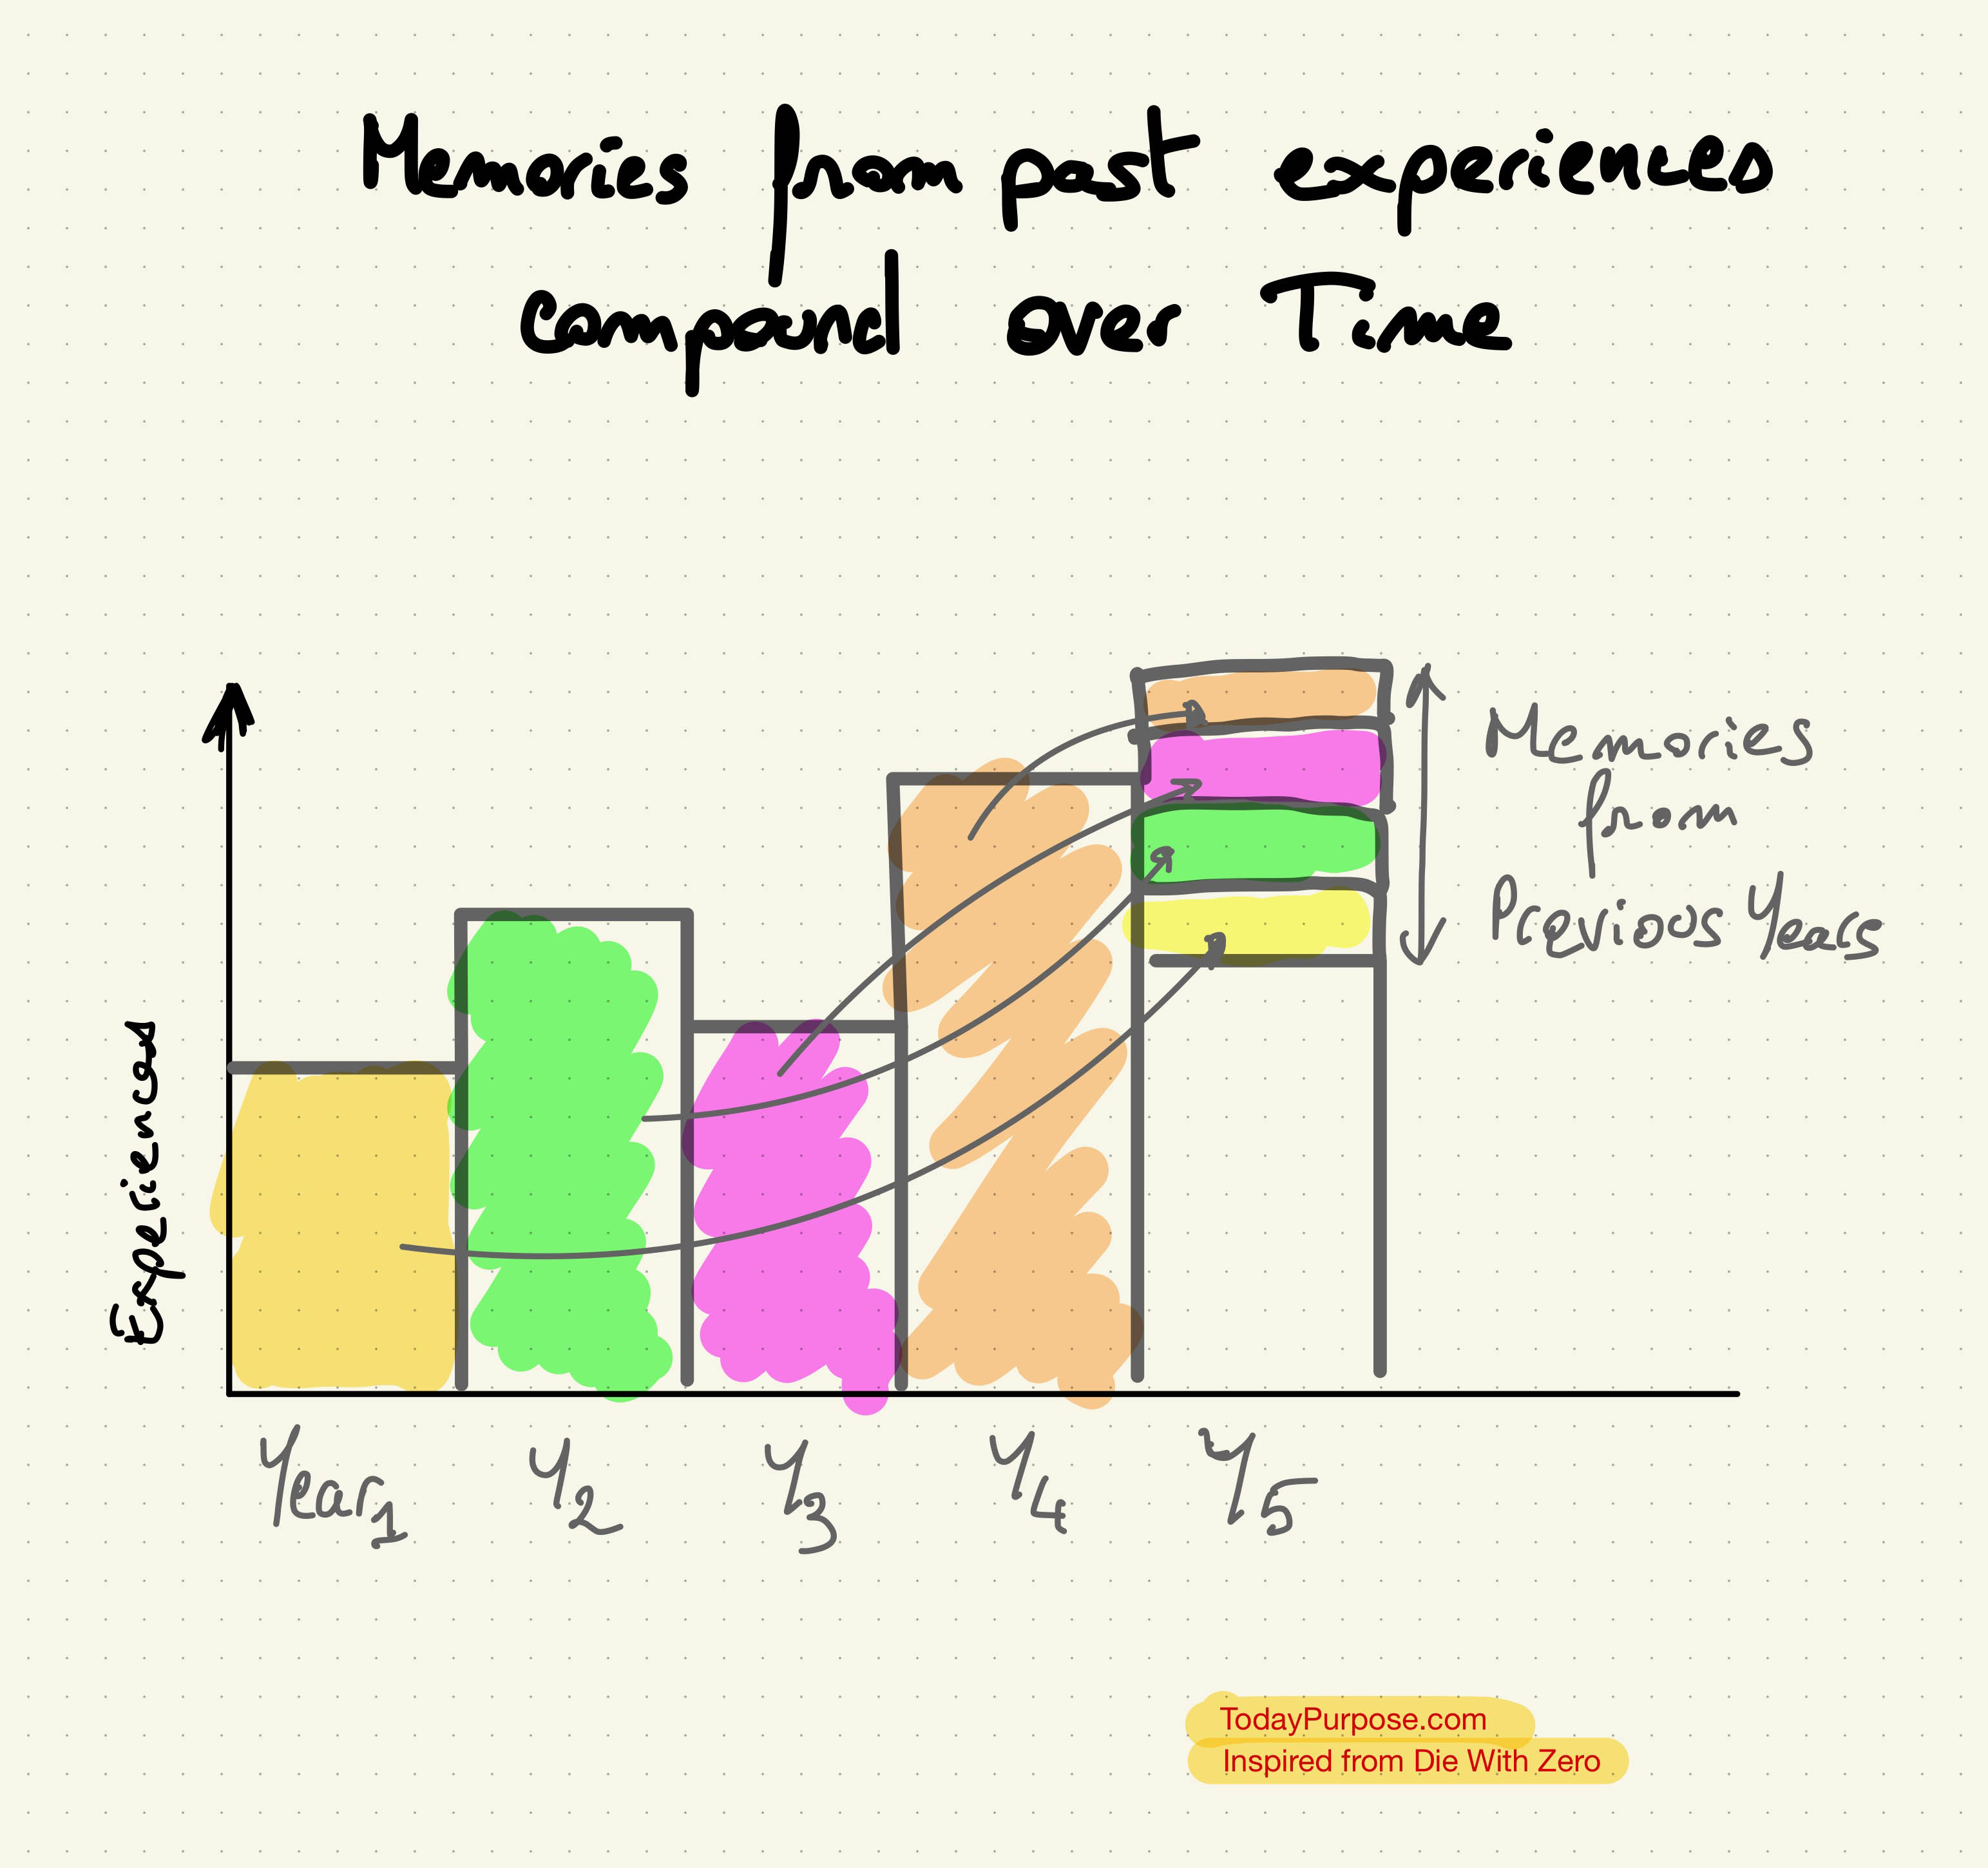 Memories from past experiences
compound over Time
Memories
from
Previous Years
Experiences
Year1
Y2
Y3
Y4
Y5
TodayPurpose.com
Inspired from Die With Zero